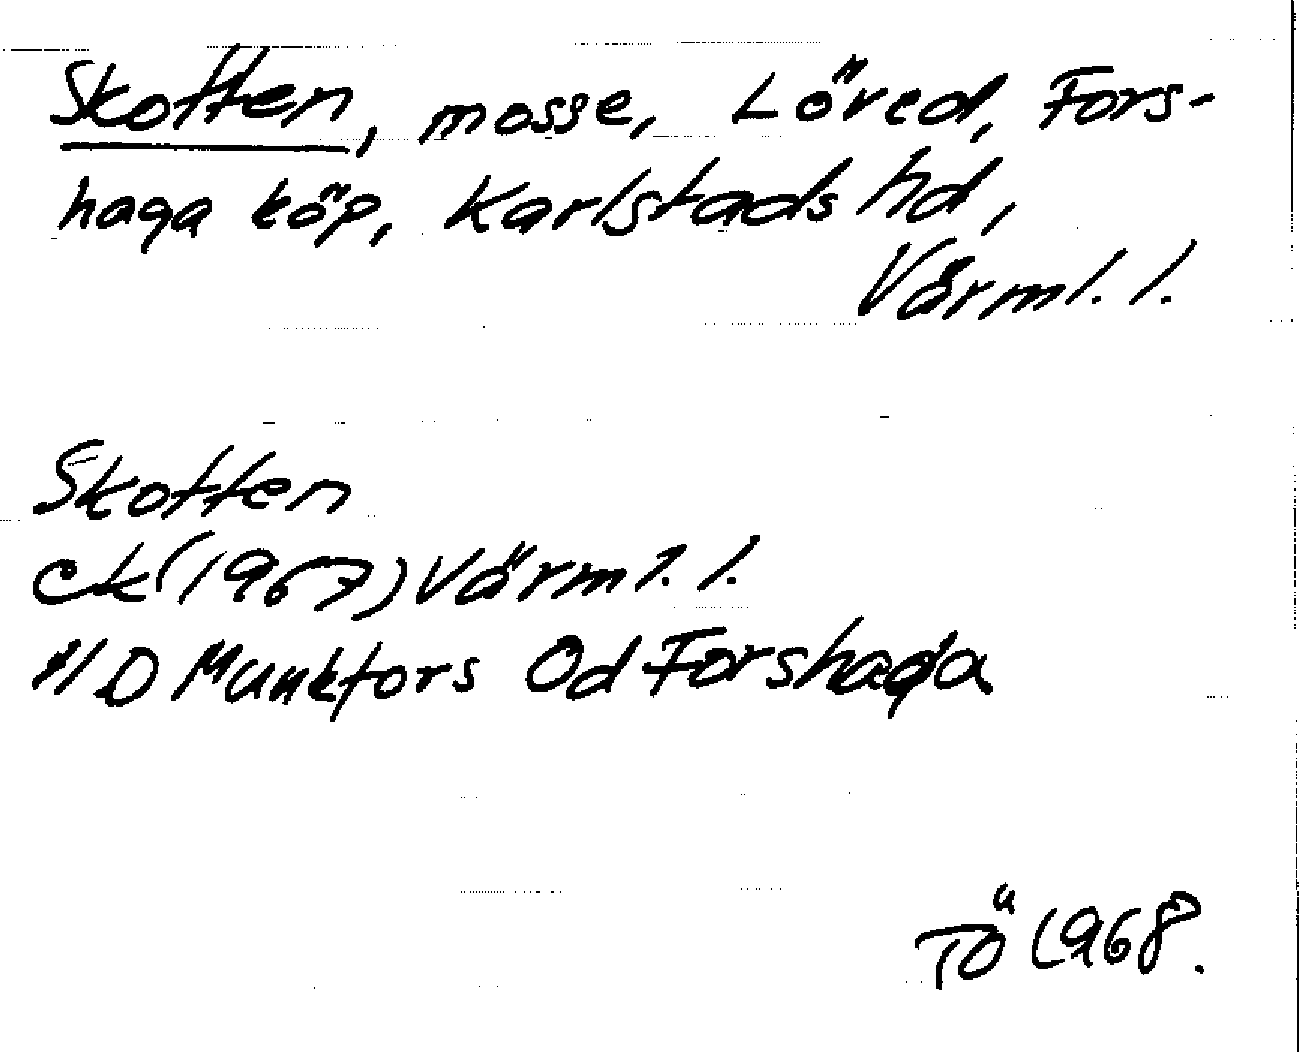 Skotten, mosse, Löved, Fors-
haga köp, Karlstads hd,
Värml. l.
Skotten
ek (1967) Värml. l.
11 D Munkfors Od Forshaga
TÖ 1968.